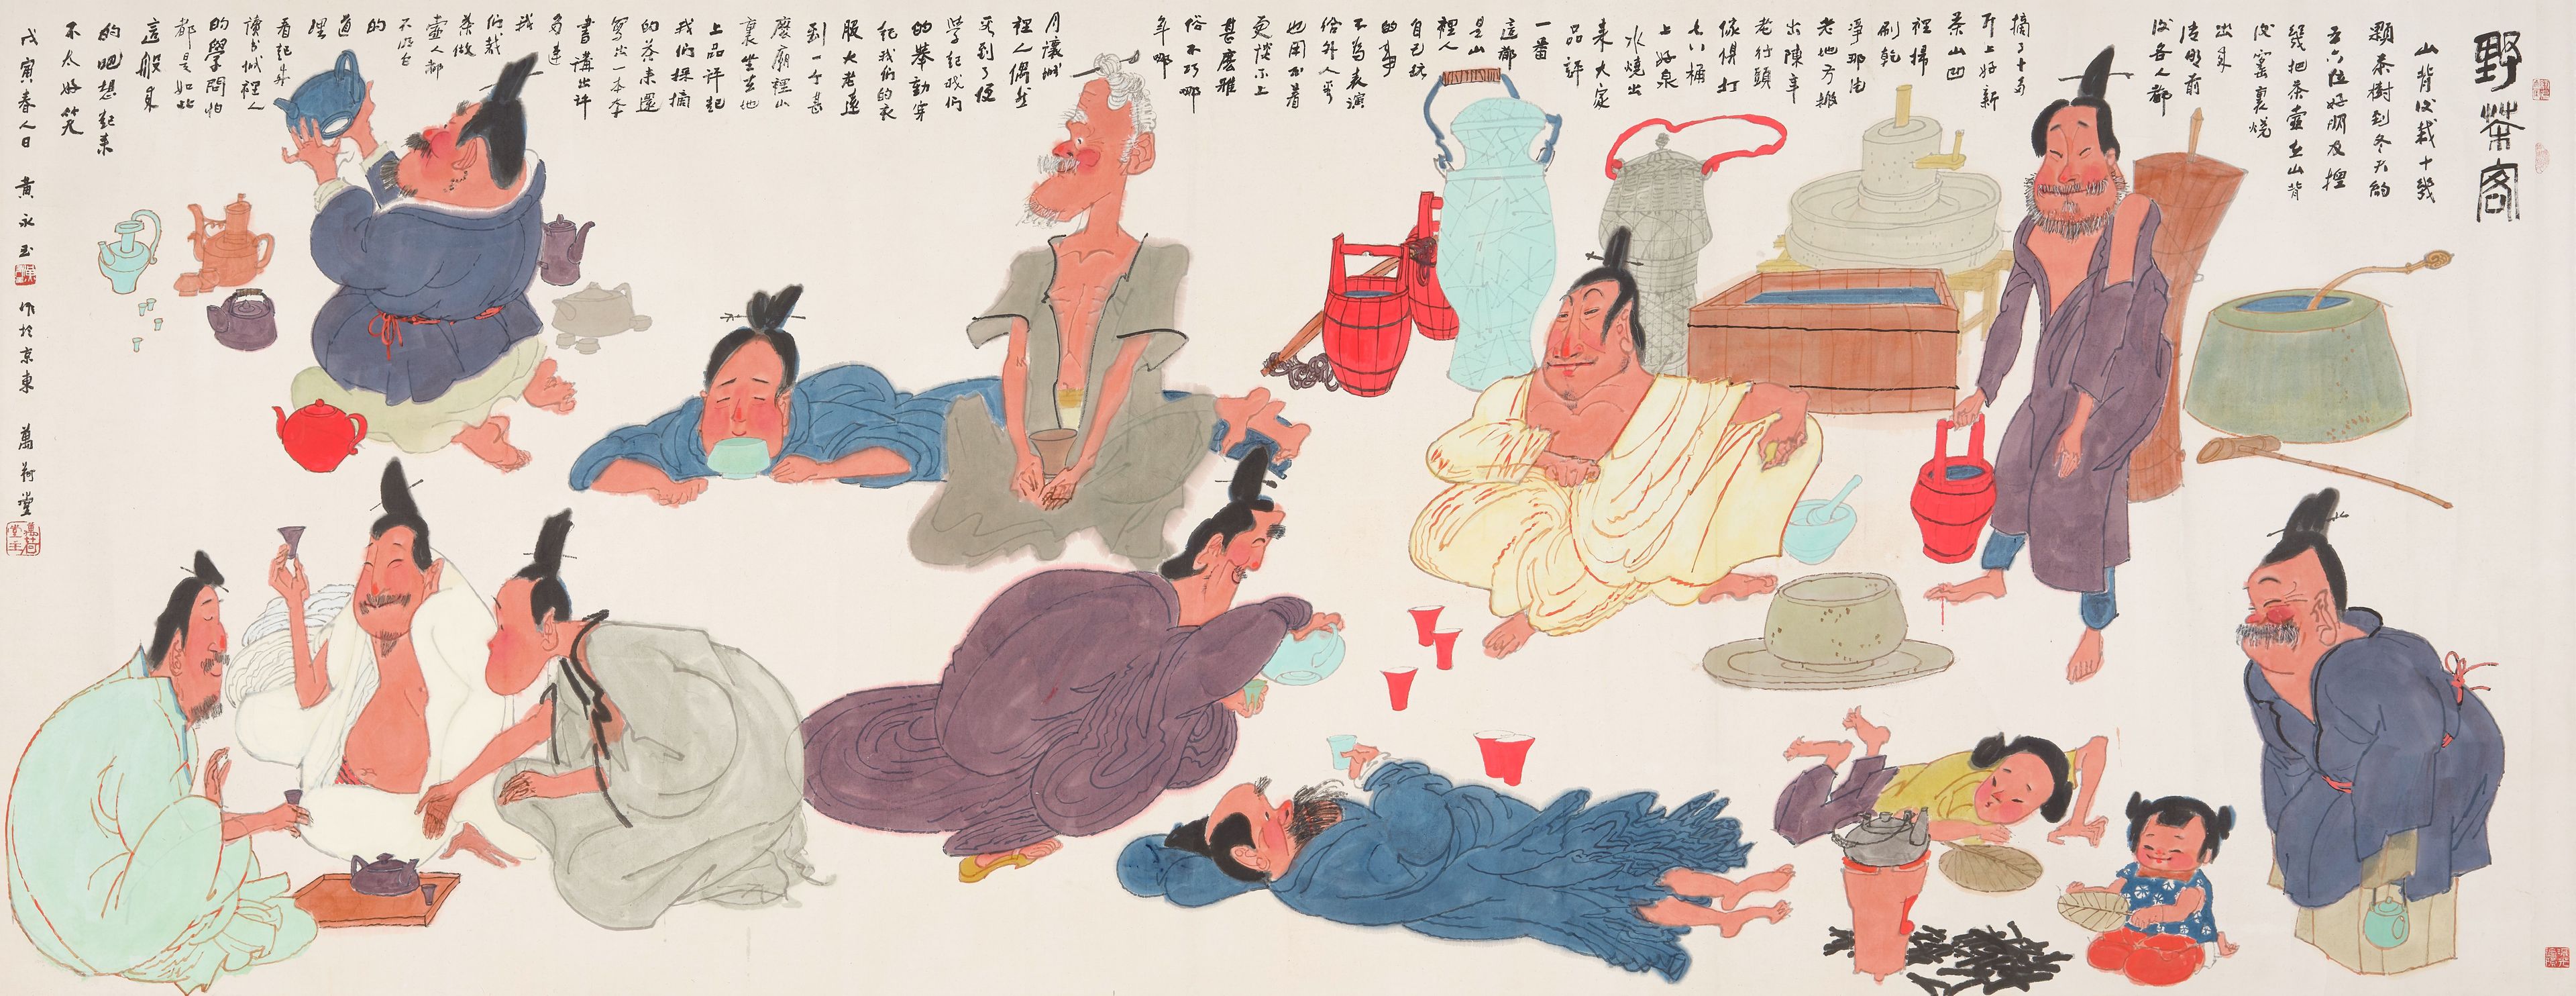 野茶客
山背後栽十幾
顆茶樹到冬天約
五六位好朋友捏
幾把茶壺在山背
後窯裏燒
出来
清明前
後各人都
摘了十多
斤上好新
茶山凹
裡掃
刷乾
淨那塊
老地方搬
出陳年
老行頭
傢俱打
七八桶
上好泉
水燒出
来大家
品評
一番
這都
是山
裡人
自己玩
的事
不為表演
給外人看
也用不着
更談不上
甚麼雅
俗不巧哪
年哪
月讓城
裡人偶然
见到了便
學起我們
的舉動穿
起我們的衣
服大老遠
到一个甚
麼廟裡山
裏坐在地
上品評起
我們採摘
的茶来還
寫出一本本
書講出許
多連
我
們栽
茶做
壺人都
不明白
的
道
理
看起来
讀書城裡人
的學問怕
都是如此
這般来
的吧想起来
不太好笑
戊寅春人日 黄永玉 作於京東 萬荷堂